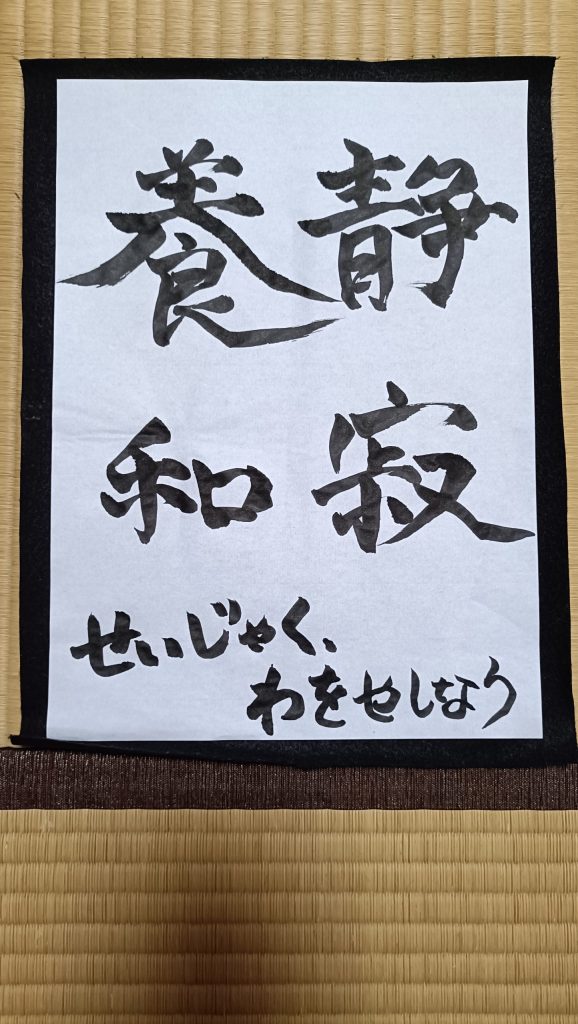 静寂
養和
せいじゃく、
わをやしなう